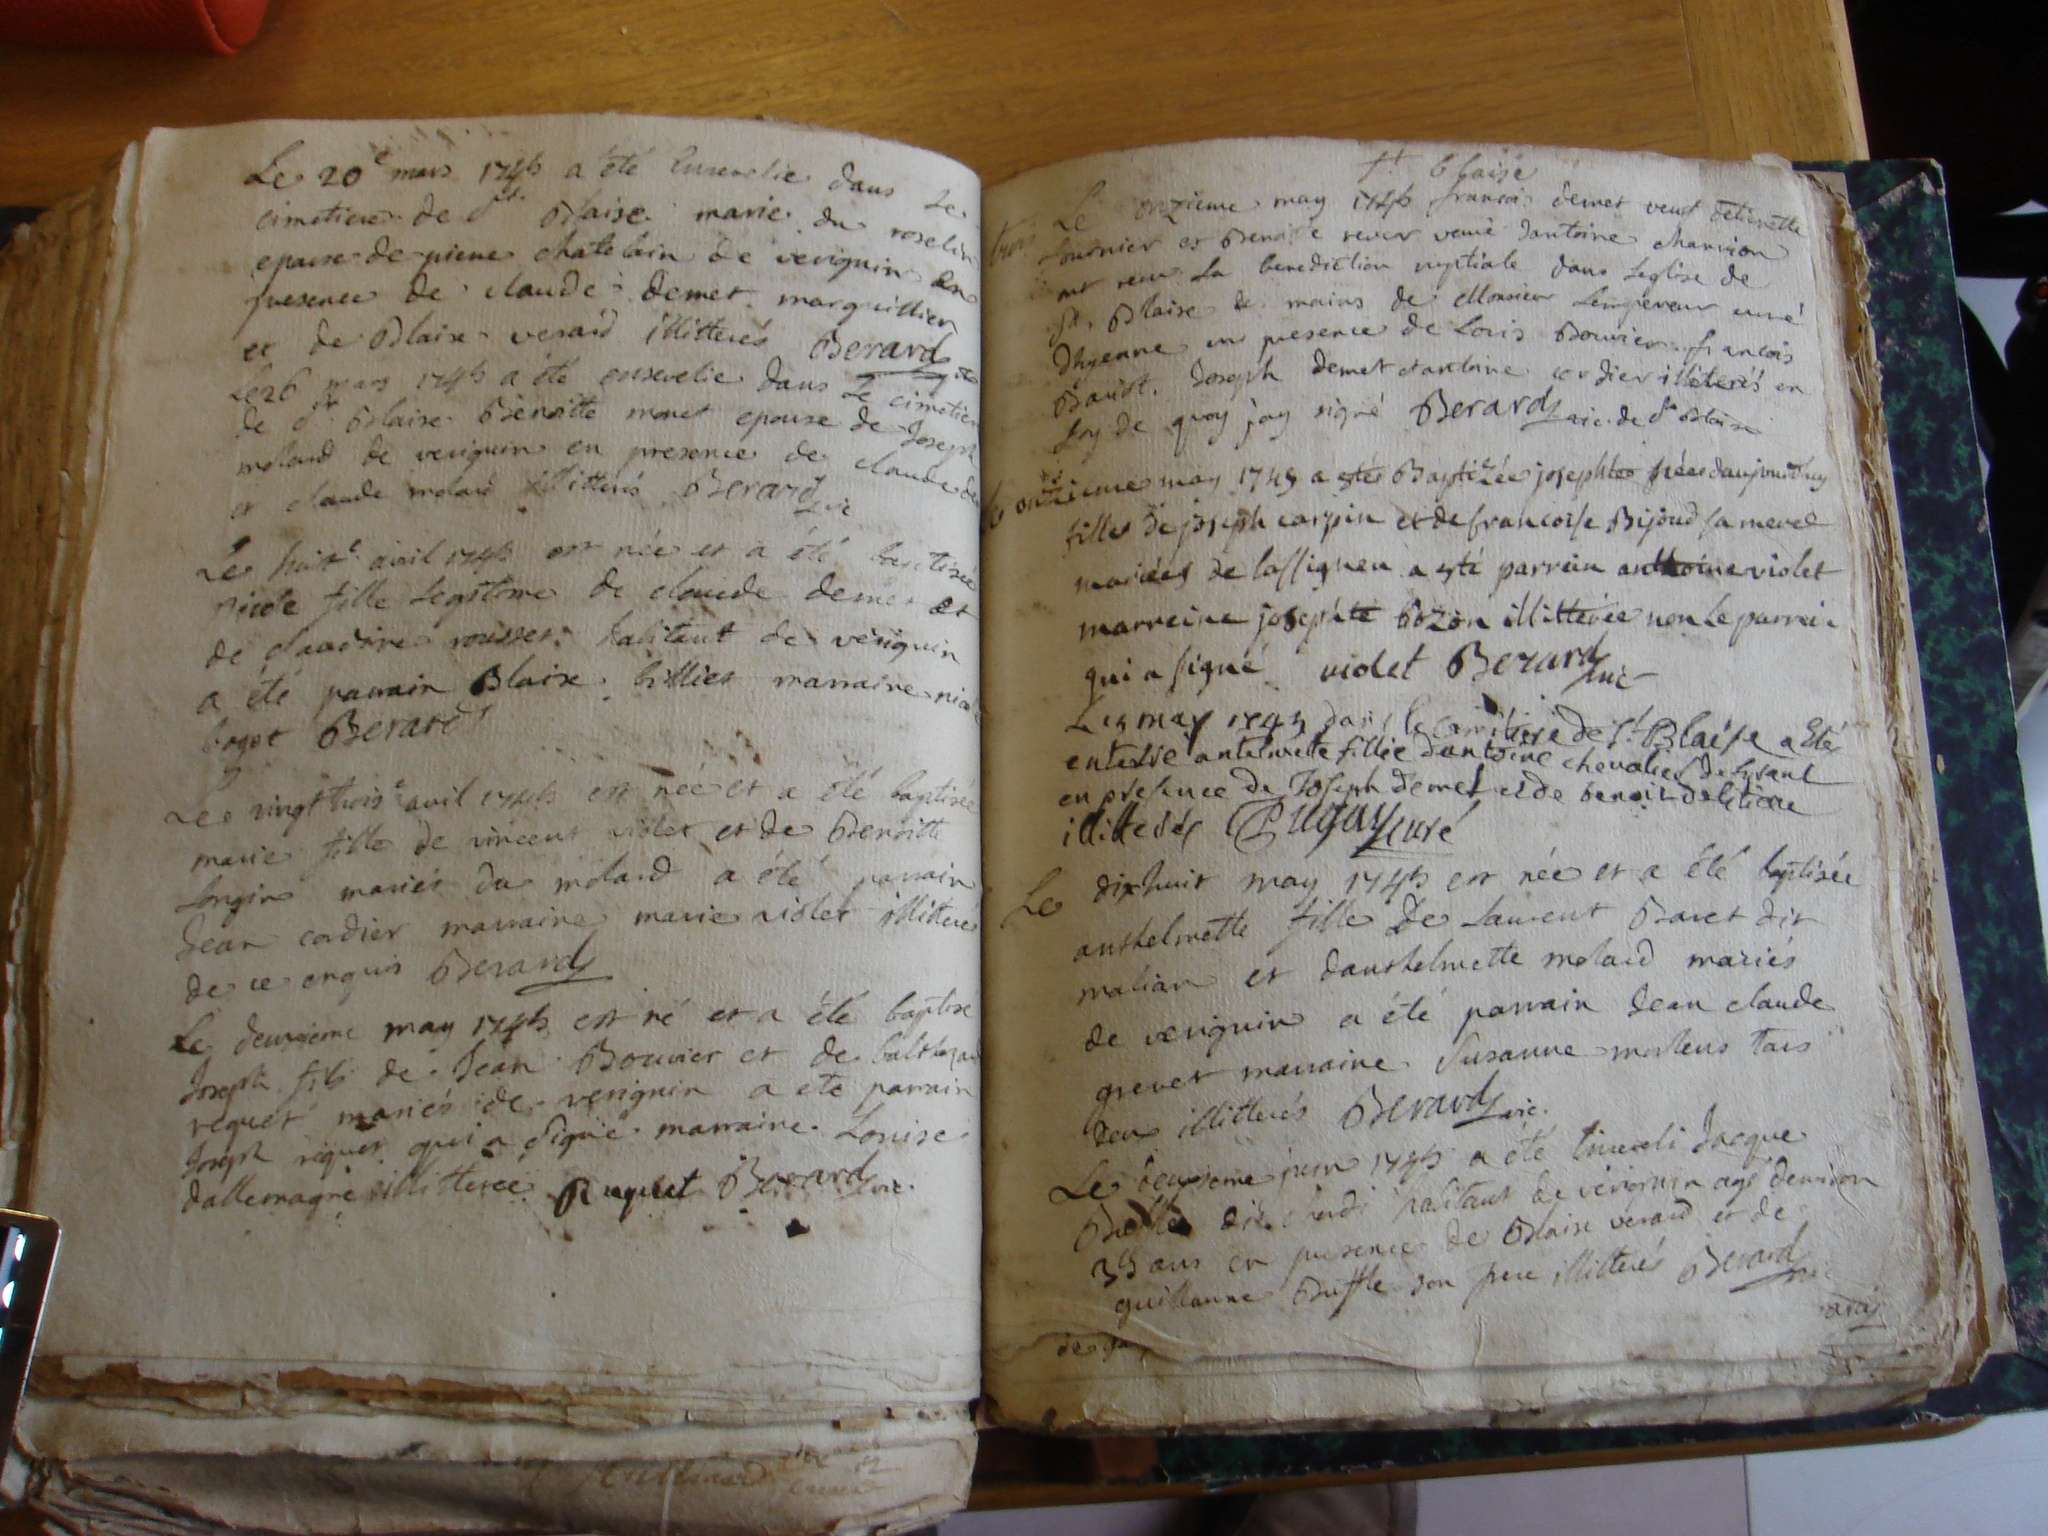 Le 20e mars 1745 a été ensevelie dans le
cimetiere de St. Blaise marie du roselin
epouse de pierre chatelain de verignin en
presence de claude demet marguillier
et de Blaise verard illitterés Berard vic
Le 26 mars 1745 a été ensevelie dans Le cimetiere
de St Blaise Benoitte monet epouse de Joseph
molard de verignin en presence de claude
et claude molard illitterés Berard vic
Le huite avril 1745 est née et a été baptisée
nicole fille Legitime de claude demet et
de claudine rousset habitant de verignin
a été parrain Blaise billiet marraine
bogot Berard
Le vingt troise avril 1745 est née et a été baptisée
marie fille de vincent violet et de Benoitte
Longin mariés du molard a été parrain
Jean cordier marraine marie violet illitteré
de ce enquis Berard
Le deuxieme may 1745 est né et a été baptisé
Joseph fils de Jean Bouvier et de
requet mariés de verignin a été parrain
Joseph riquet qui a signé marraine Louise
dallemagne illitterée Ruquet Berard vic.
St. blaise
Le onzieme may 1745 francois demet veuf
fournier et Benoite rever veuve dantoine charvion
ont recu La benediction nuptiale dans Leglise de
St. Blaise de mains de Monsieur Lempereur curé
Dhyenne en presence de Louis Bouvier francois
Joseph demet et antoine cordier illiterés en
foy de quoy jay signé Berard vic. de St Blaise
le onzieme may 1745 a esté Baptizée josephte néee daujourdhuy
fille de joseph carpin et de francoise Bijoud sa mere
mariées de lassignieu a esté parrain anthoine violet
marreine josephte bozon illitterée non le parrain
qui a signé violet Berard vic
may 1745 dans le cimitiere de St. Blaise a Eté
enterré antelmette fillie dantoine chevalier
en presence de Joseph demet et de benoit
illitterés Pugay curé
Le dixhuit may 1745 est née et a été baptisée
anthelmette fille De Laurent Baret dit
malian et danthelmette molard mariés
de verignin a été parrain Jean claude
grevet marraine Susanne tous
deux illitterés Berard vic.
Le deuxieme juin 1745 a été enseveli Jacque
Buffle dit habitant de verignin agé denviron
35 ans en presence de Blaise verard et de
guillaume Buffle son pere illitterés Berard vic